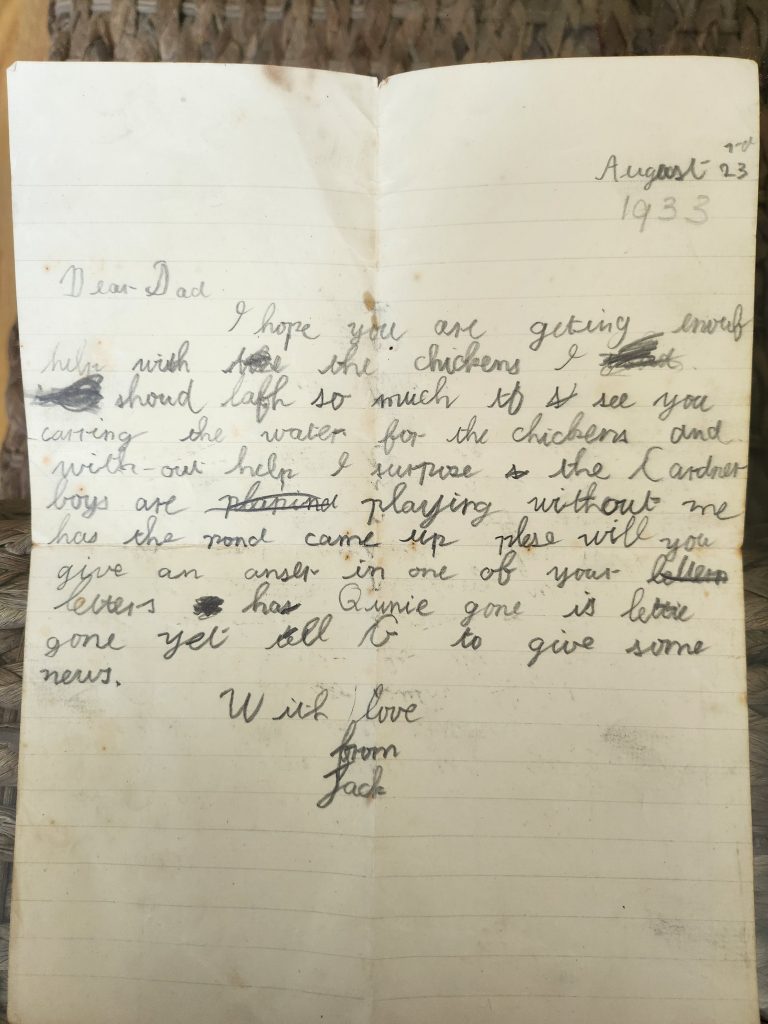 August 23rd
1933
Dear Dad
I hope you are geting enouf
help with the chickens I
shoud lafh so much to see you
carring the water for the chickens and
with-out help I surpose the Gardner
boys are playing without me
has the pond came up plese will you
give an anser in one of your
letters has Qunie gone is lettie
gone yet tell G to give some
news.
With love
from
Jack